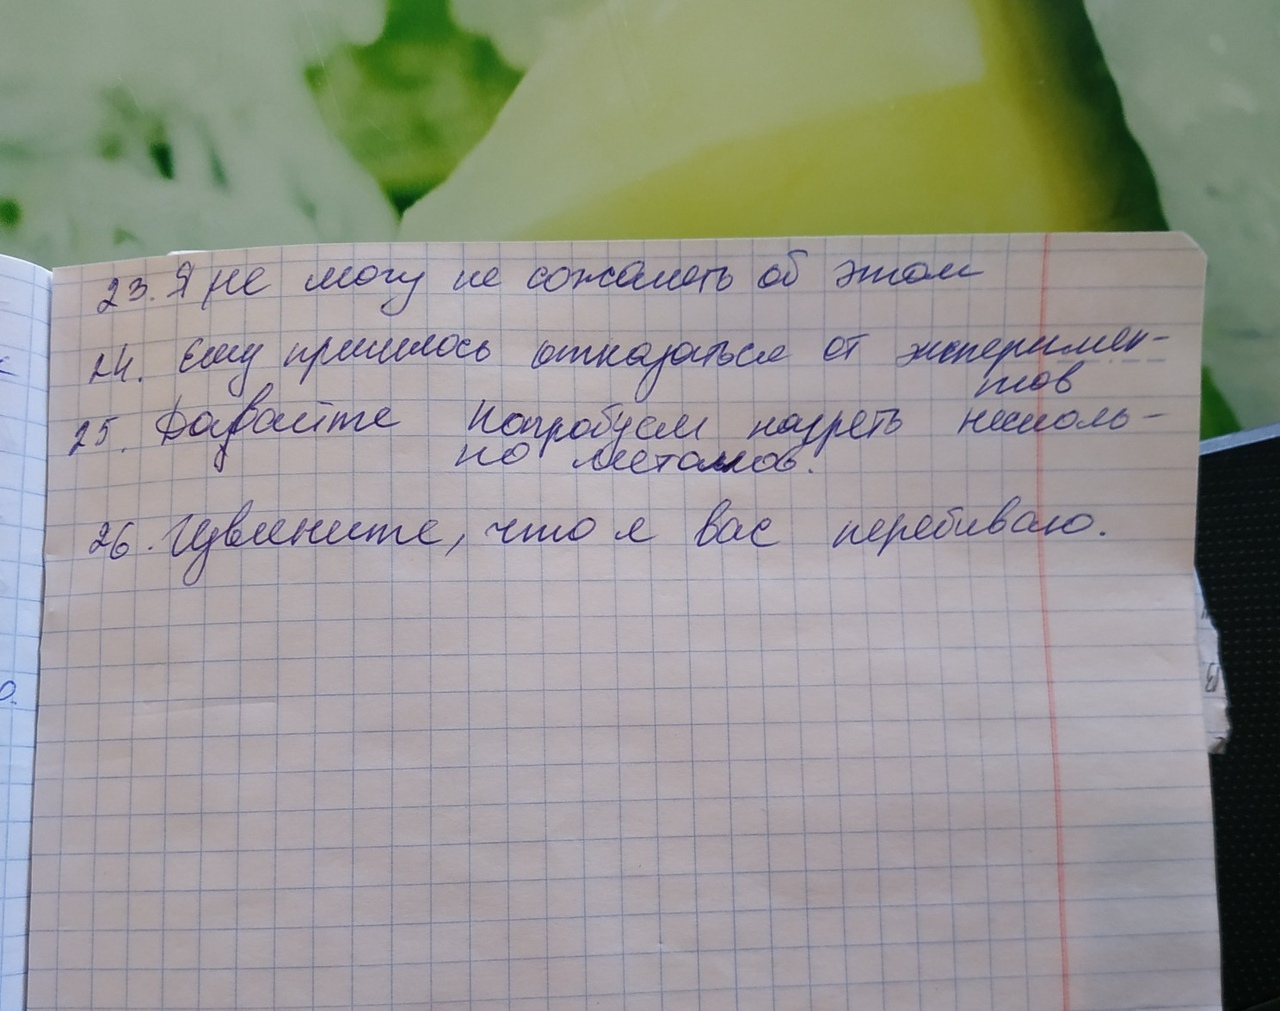 23. Я не могу не сожалеть об этом
24. Ему пришлось отказаться от эксперимен-
тов
25. Давайте попробуем нагреть несколь-
ко металлов.
26. Извините, что я вас перебиваю.